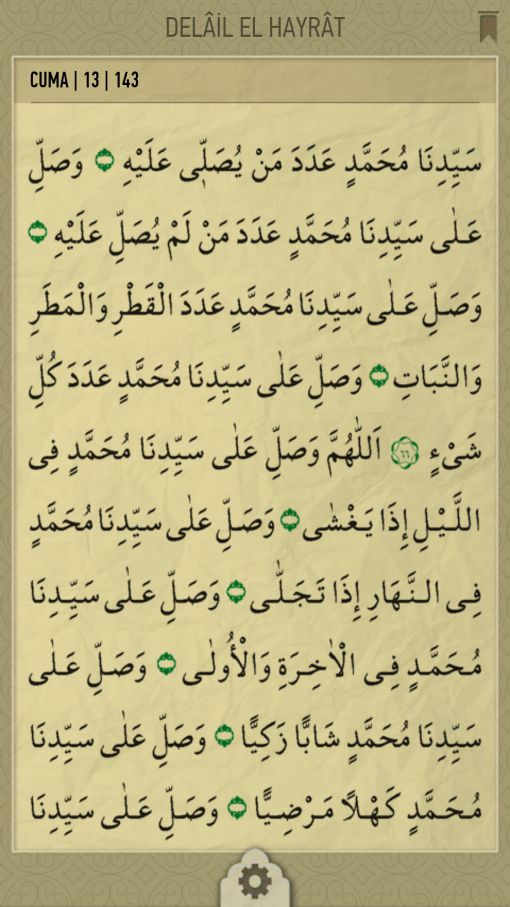 DELÂİL EL HAYRÂT
CUMA | 13 | 143
سَيِّدِنَا مُحَمَّدٍ عَدَدَ مَنْ يُصَلّٖى عَلَيْهِ ۝ وَصَلِّ
عَلٰى سَيِّدِنَا مُحَمَّدٍ عَدَدَ مَنْ لَمْ يُصَلِّ عَلَيْهِ ۝
وَصَلِّ عَلٰى سَيِّدِنَا مُحَمَّدٍ عَدَدَ الْقَطْرِ وَالْمَطَرِ
وَالنَّبَاتِ ۝ وَصَلِّ عَلٰى سَيِّدِنَا مُحَمَّدٍ عَدَدَ كُلِّ
شَىْءٍ ٦٦ اَللّٰهُمَّ وَصَلِّ عَلٰى سَيِّدِنَا مُحَمَّدٍ فِى
اللَّيْلِ إِذَا يَغْشٰى ۝ وَصَلِّ عَلٰى سَيِّدِنَا مُحَمَّدٍ
فِى النَّهَارِ إِذَا تَجَلّٰى ۝ وَصَلِّ عَلٰى سَيِّدِنَا
مُحَمَّدٍ فِى الْاٰخِرَةِ وَالْأُولٰى ۝ وَصَلِّ عَلٰى
سَيِّدِنَا مُحَمَّدٍ شَابًّا زَكِيًّا ۝ وَصَلِّ عَلٰى سَيِّدِنَا
مُحَمَّدٍ كَهْلًا مَرْضِيًّا ۝ وَصَلِّ عَلٰى سَيِّدِنَا